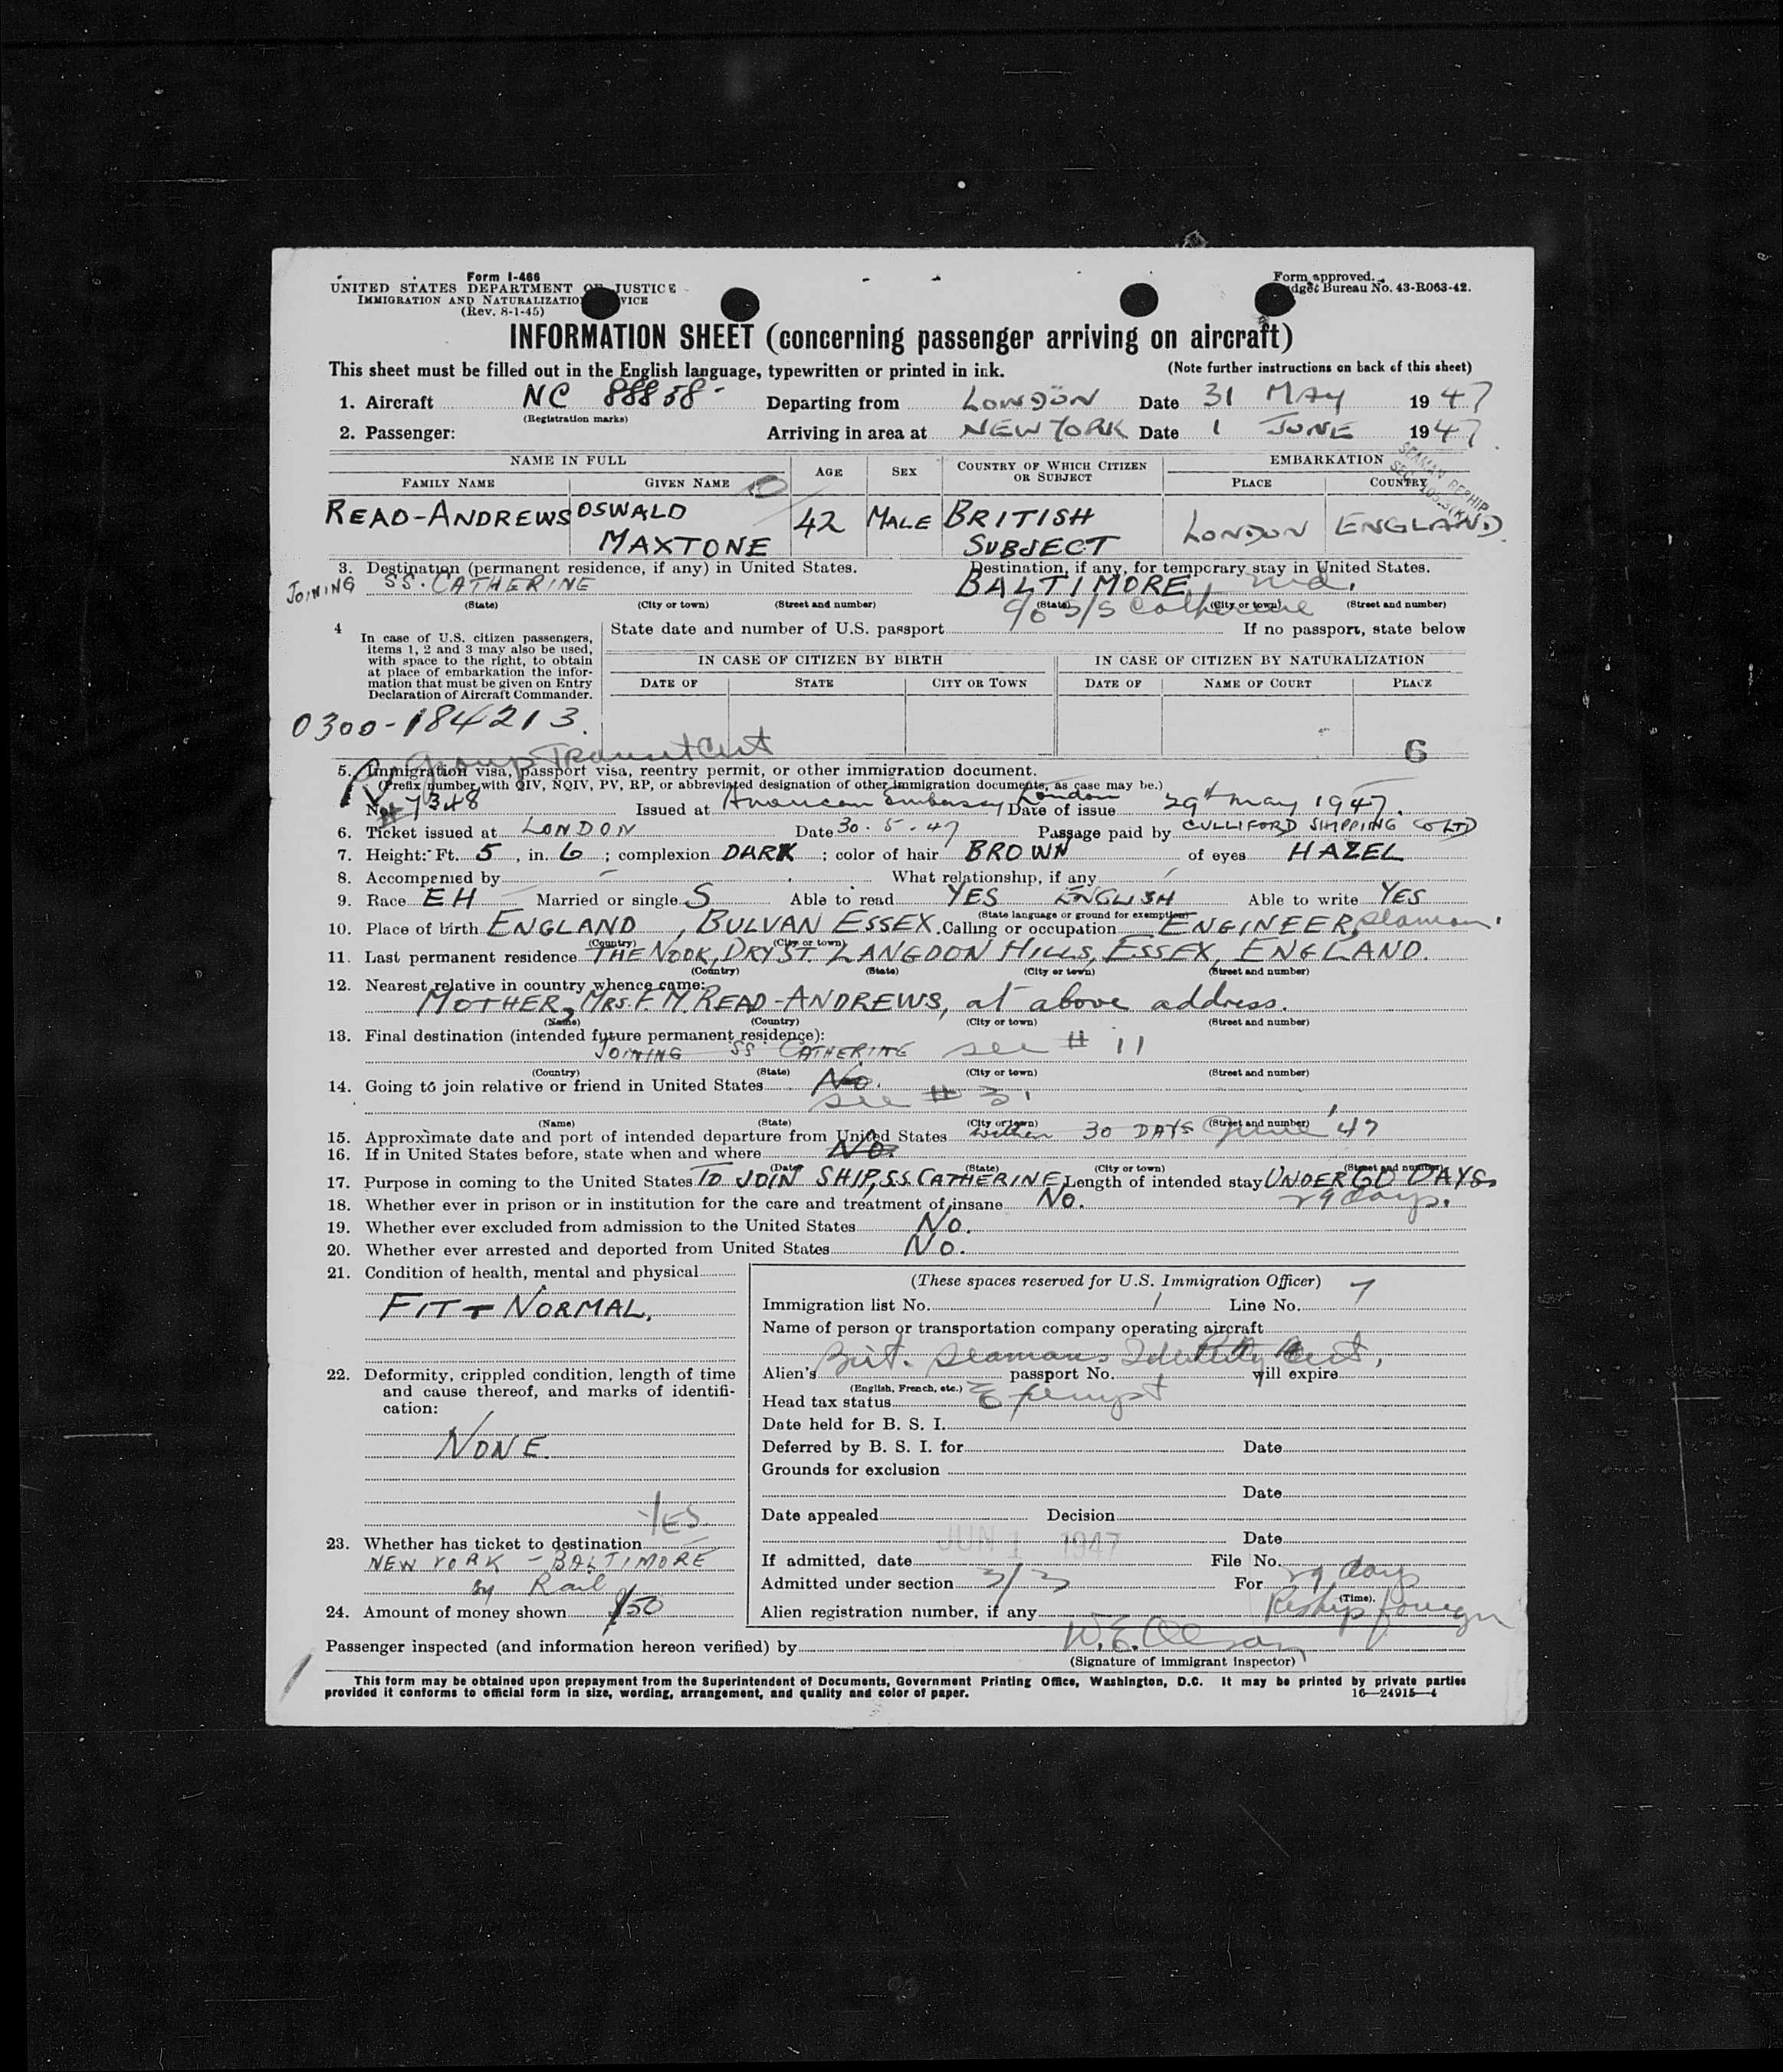 Form I-466
UNITED STATES DEPARTMENT OF JUSTICE
IMMIGRATION AND NATURALIZATION SERVICE
(Rev. 8-1-45)
Form approved.
Budget Bureau No. 43-R063-42.
INFORMATION SHEET (concerning passenger arriving on aircraft)
This sheet must be filled out in the English language, typewritten or printed in ink. (Note further instructions on back of this sheet)
1. Aircraft NC 88858 Departing from LONDON Date 31 MAY 1947
(Registration marks)
2. Passenger: Arriving in area at NEW YORK Date 1 JUNE 1947
SEAMAN RESHIP
NAME IN FULL AGE SEX COUNTRY OF WHICH CITIZEN OR SUBJECT EMBARKATION
FAMILY NAME GIVEN NAME PLACE COUNTRY
READ-ANDREWS OSWALD 42 MALE BRITISH LONDON ENGLAND.
MAXTONE SUBJECT
3. Destination (permanent residence, if any) in United States. Destination, if any, for temporary stay in United States.
JOINING SS. CATHERINE BALTIMORE, Md.
(State) (City or town) (Street and number) (State) (City or town) (Street and number)
c/o S/S Catherine
4 In case of U.S. citizen passengers, items 1, 2 and 3 may also be used, with space to the right, to obtain at place of embarkation the information that must be given on Entry Declaration of Aircraft Commander.
State date and number of U.S. passport If no passport, state below
IN CASE OF CITIZEN BY BIRTH IN CASE OF CITIZEN BY NATURALIZATION
DATE OF STATE CITY OR TOWN DATE OF NAME OF COURT PLACE
0300-184213.
6
Group Transit Cert
5. Immigration visa, passport visa, reentry permit, or other immigration document.
(Prefix number with QIV, NQIV, PV, RP, or abbreviated designation of other immigration documents, as case may be.)
No. 7348 Issued at American Embassy London Date of issue 29th May 1947.
6. Ticket issued at LONDON Date 30.5.47 Passage paid by CULLIFORD SHIPPING CO LTD
7. Height: Ft. 5, in. 6; complexion DARK; color of hair BROWN of eyes HAZEL
8. Accompanied by - What relationship, if any
9. Race EH Married or single S Able to read YES ENGLISH Able to write YES
(State language or ground for exemption)
10. Place of birth ENGLAND, BULVAN ESSEX. Calling or occupation ENGINEER, seaman.
(Country) (City or town)
11. Last permanent residence THE NOOK, DRY ST. LANGDON HILLS, ESSEX, ENGLAND.
(Country) (State) (City or town) (Street and number)
12. Nearest relative in country whence came:
MOTHER, MRS. F. M. READ-ANDREWS, at above address.
(Name) (Country) (City or town) (Street and number)
13. Final destination (intended future permanent residence):
JOINING SS CATHERINE see # 11
(Country) (State) (City or town) (Street and number)
14. Going to join relative or friend in United States No.
see # 3.
(Name) (State) (City or town) (Street and number)
15. Approximate date and port of intended departure from United States within 30 DAYS June '47
16. If in United States before, state when and where No.
(Date) (State) (City or town) (Street and number)
17. Purpose in coming to the United States TO JOIN SHIP, S.S. CATHERINE, Length of intended stay UNDER 60 DAYS.
29 days.
18. Whether ever in prison or in institution for the care and treatment of insane No.
19. Whether ever excluded from admission to the United States No.
20. Whether ever arrested and deported from United States No.
21. Condition of health, mental and physical
FIT + NORMAL.
22. Deformity, crippled condition, length of time and cause thereof, and marks of identification:
NONE.
YES.
23. Whether has ticket to destination
NEW YORK - BALTIMORE
by Rail
24. Amount of money shown $50
(These spaces reserved for U.S. Immigration Officer)
Immigration list No. 1 Line No. 7
Name of person or transportation company operating aircraft
Brit. Seamans Identity Cert.
Alien's passport No. will expire
(English, French, etc.)
Head tax status Exempt
Date held for B. S. I.
Deferred by B. S. I. for Date
Grounds for exclusion
Date
Date appealed Decision
Date
JUN 1 1947
If admitted, date File No.
Admitted under section 3/3 For 29 days
(Time)
Alien registration number, if any Reship foreign
Passenger inspected (and information hereon verified) by
(Signature of immigrant inspector)
This form may be obtained upon prepayment from the Superintendent of Documents, Government Printing Office, Washington, D.C. It may be printed by private parties
provided it conforms to official form in size, wording, arrangement, and quality and color of paper. 16—24915-4